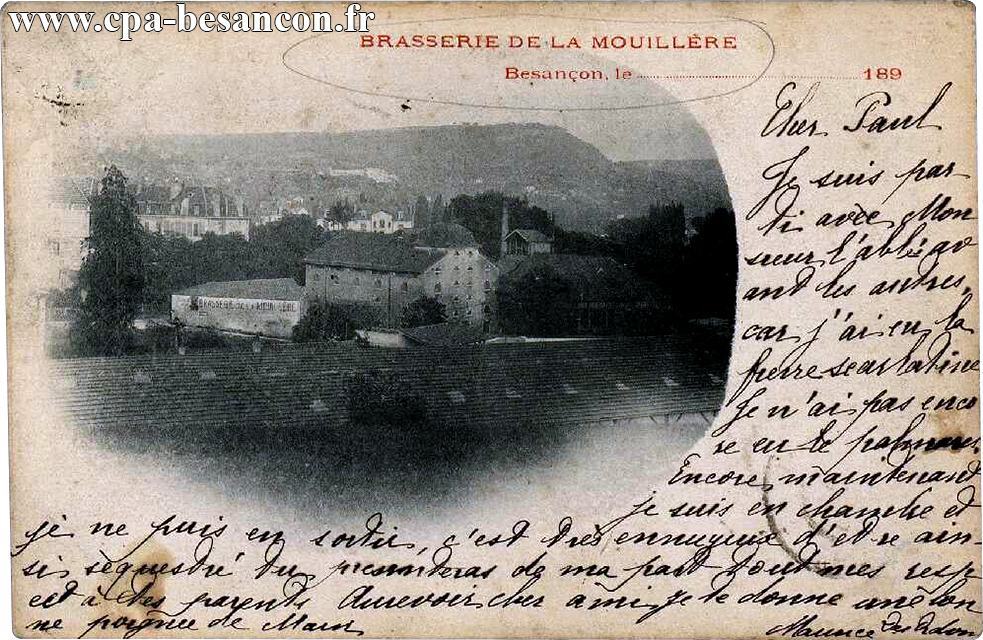 www.cpa-besancon.fr
BRASSERIE DE LA MOUILLÈRE
Besançon, le 189
BRASSERIE DE LA MOUILLÈRE
Cher Paul
Je suis par-
ti avec Mon
sieur l'abbé av
ant les autres,
car j'ai eu la
fierre scarlatine
Je n'ai pas enco
re eu le palmares
Encore maintenant
je suis en chambre et
je ne puis en sortir, c'est très ennuyeux d'etre ain-
si sèquestré du de ma part tout mes resp
ect à tes parents Aurevoir cher ami, je te donne une bon
ne poignee de Main
Maurice